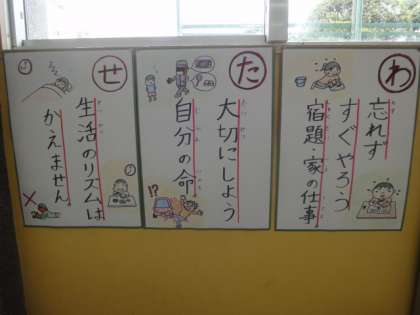 わ
忘れず
すぐやろう
宿題・家の仕事
た
大切にしよう
自分の命
!?
せ
生活のリズムは
かえません